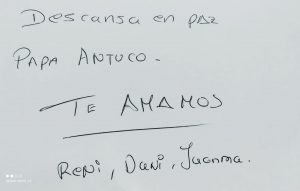 Descansa en paz
Papa Antuco.
Te amamos
Reni, Dani, Juanma.